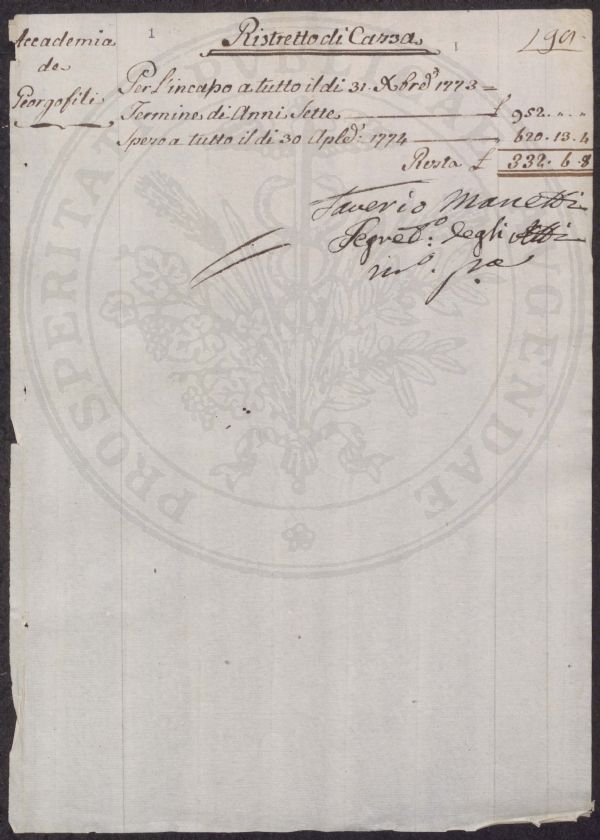 1
Ristretto di Cassa
190
Accademia
de
Georgofili
Per l'incaßo a tutto il di 31. Xbre 1773 =
Termine di Anni Sette £ 952. " "
Speso a tutto il di 30 Aple: 1774 " 620. 13. 4
Resta £ 332. 6. 8
Saverio Manetti
Segret.o: degli Atti
m.o p.a
PROSPERITATI PUBLICAE AUGENDAE